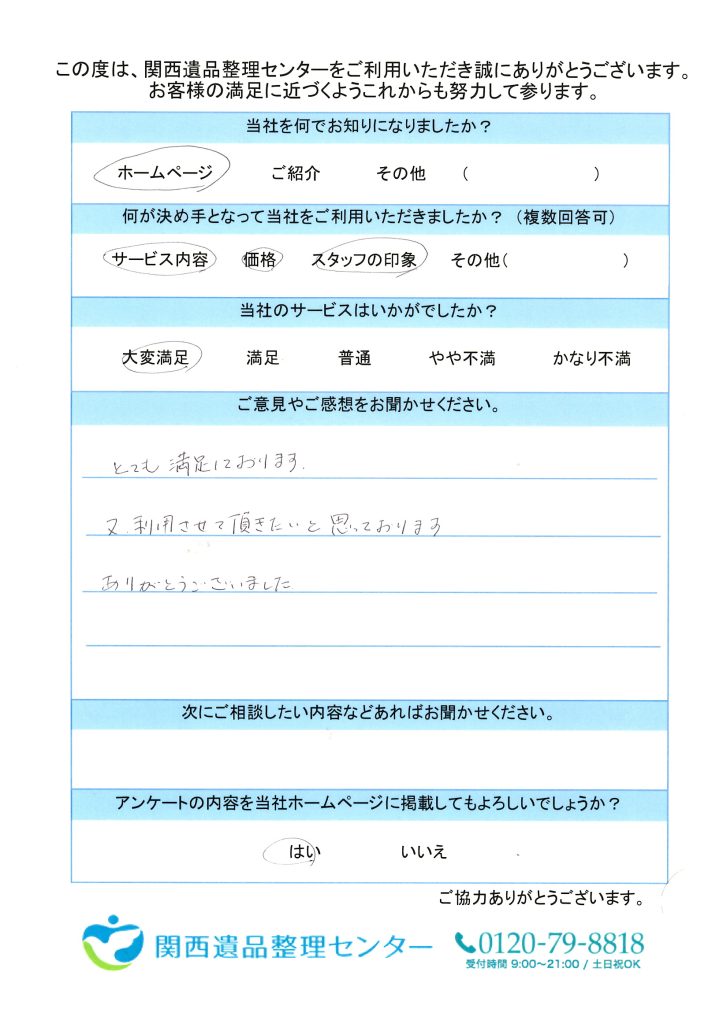 この度は、関西遺品整理センターをご利用いただき誠にありがとうございます。
お客様の満足に近づくようこれからも努力して参ります。
当社を何でお知りになりましたか？
ホームページ ご紹介 その他 （ ）
何が決め手となって当社をご利用いただきましたか？（複数回答可）
サービス内容 価格 スタッフの印象 その他（ ）
当社のサービスはいかがでしたか？
大変満足 満足 普通 やや不満 かなり不満
ご意見やご感想をお聞かせください。
とても満足しております.
又、利用させて頂きたいと思っております
ありがとうございました
次にご相談したい内容などあればお聞かせください。
アンケートの内容を当社ホームページに掲載してもよろしいでしょうか？
はい いいえ
ご協力ありがとうございます。
関西遺品整理センター 0120-79-8818
受付時間 9:00〜21:00 / 土日祝OK